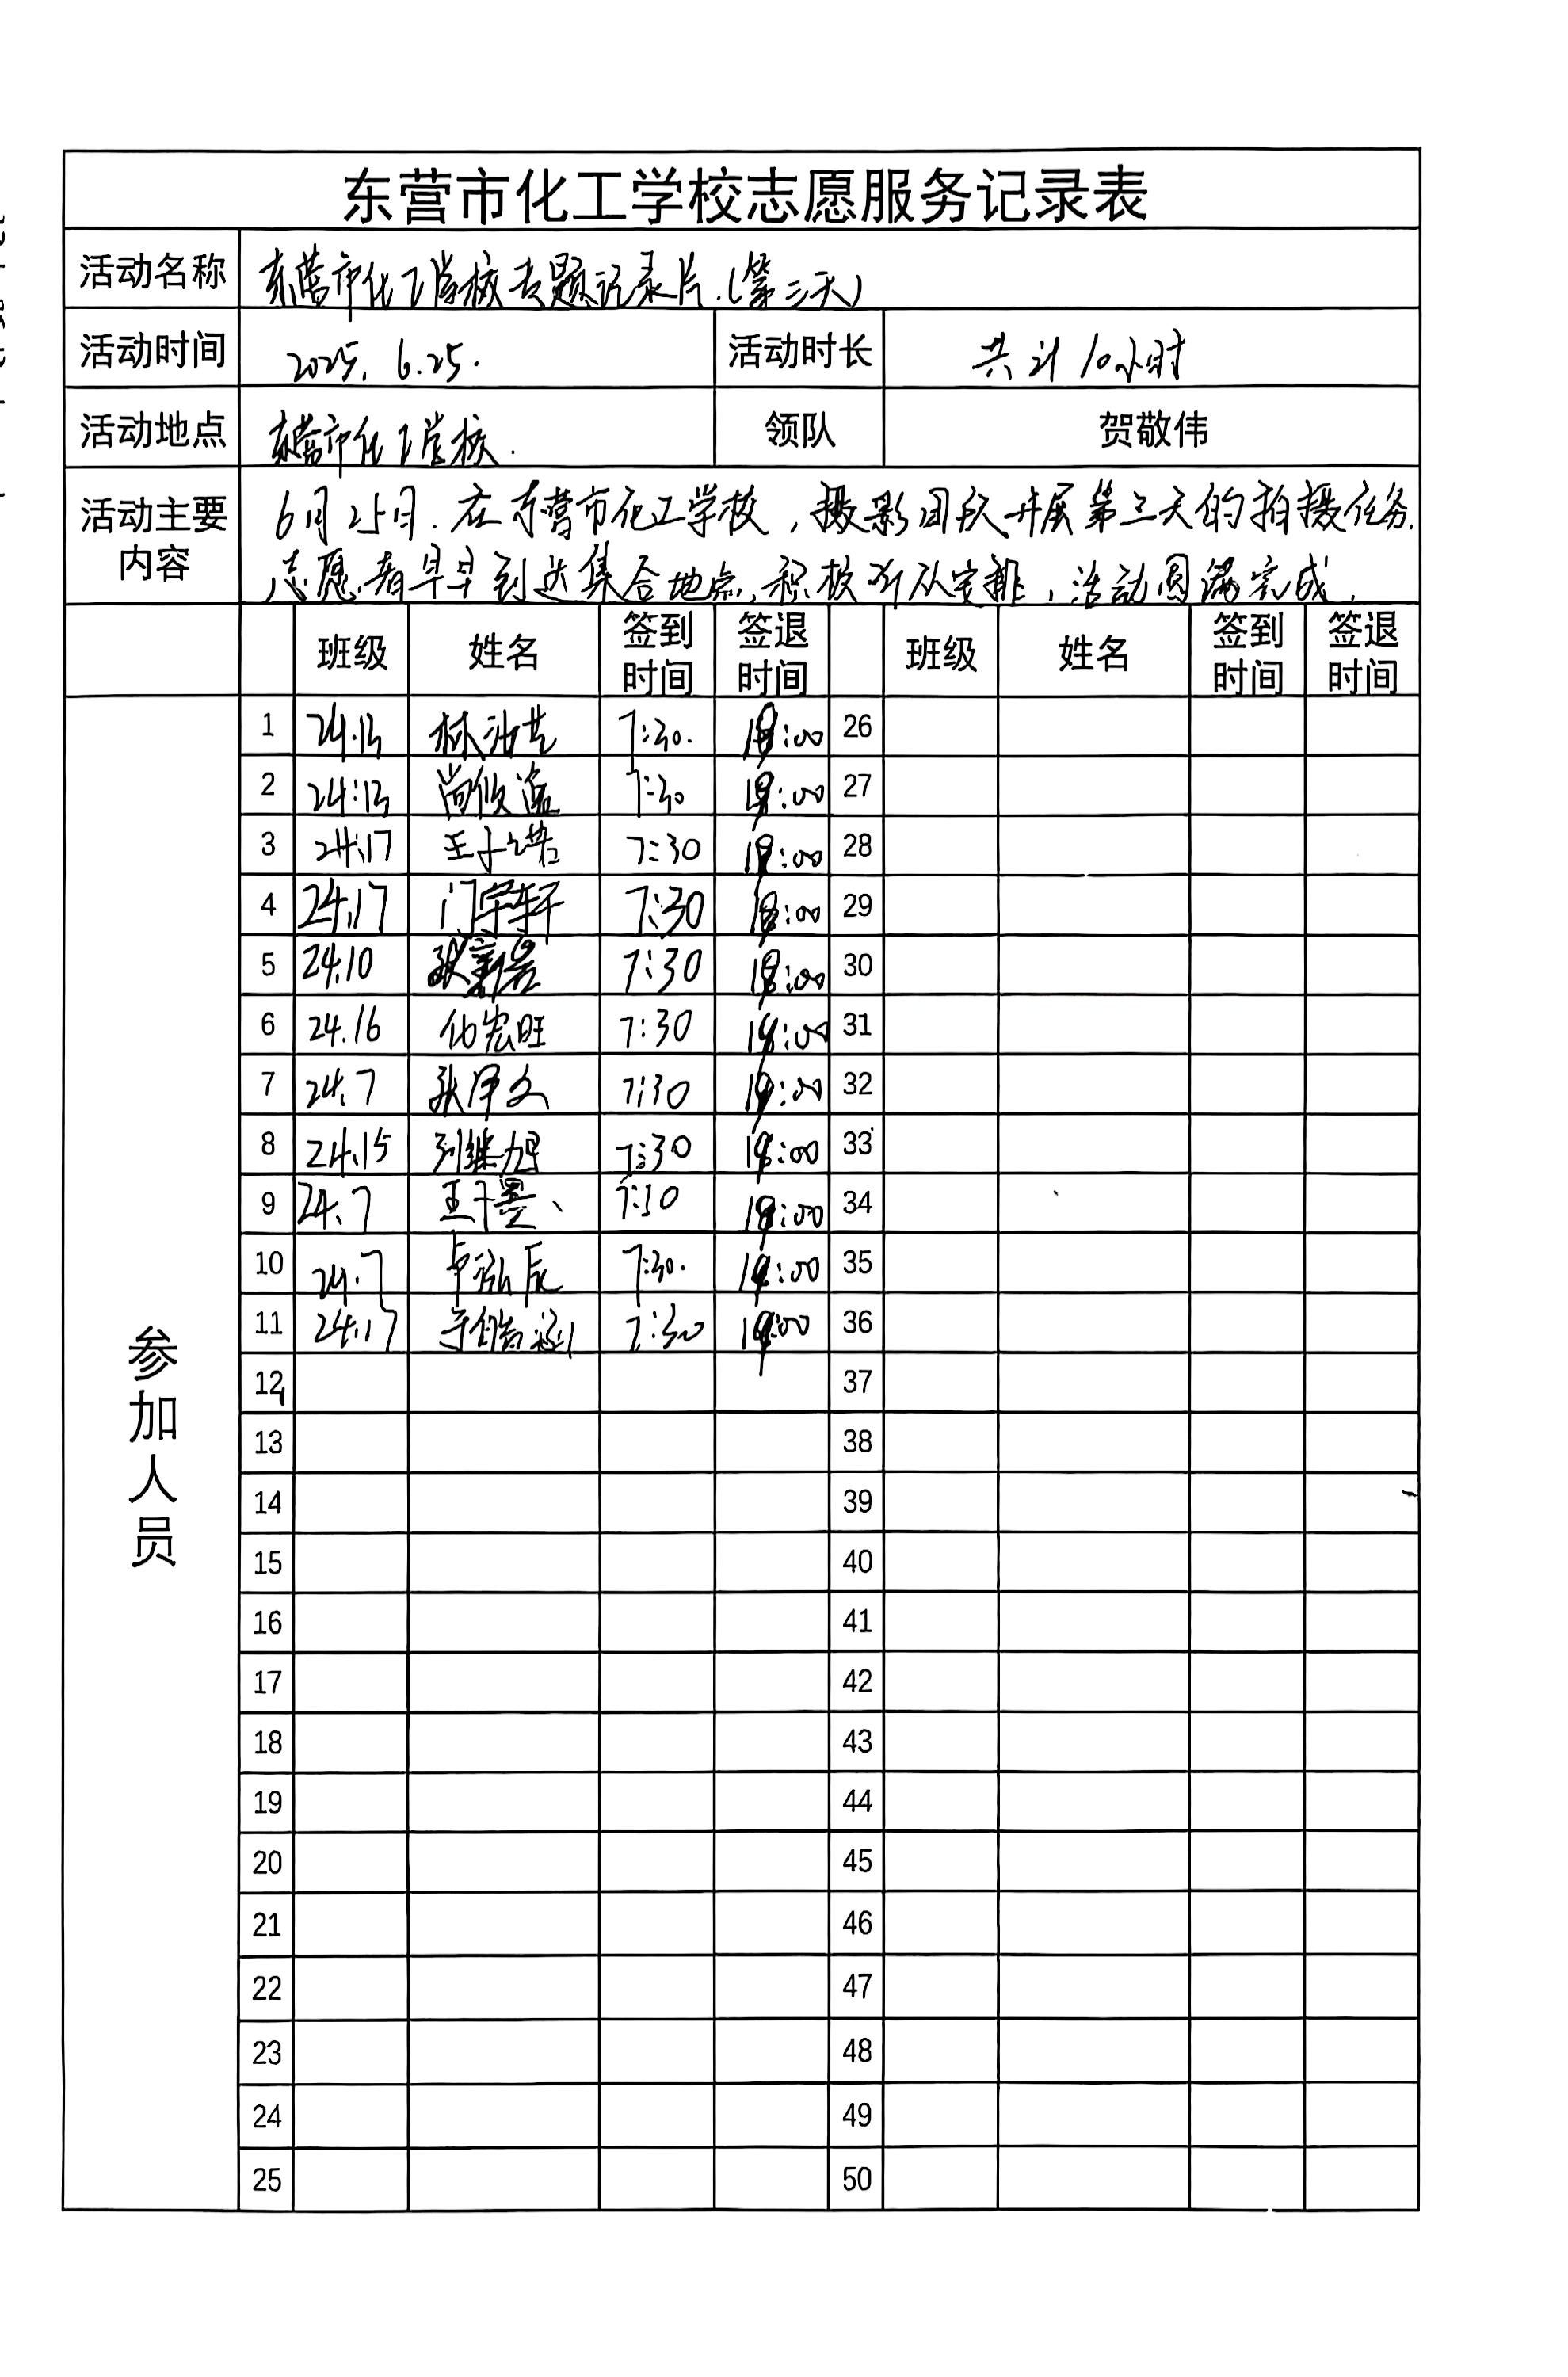 东营市化工学校志愿服务记录表
活动名称 东营市化工学校专题记录片.(第三天)
活动时间 2025. 6.25. 活动时长 共计10小时
活动地点 东营市化工学校. 领队 贺敬伟
活动主要内容 6月25日.在东营市化工学校,摄影团队开展第三天的拍摄任务.
志愿者早早到达集合地点,积极听从安排,活动圆满完成.
班级 姓名 签到时间 签退时间 班级 姓名 签到时间 签退时间
参加人员
1 7:30. :00 26
2 7:30 :00 27
3 24.17 王子 7:30 :00 28
4 24.17 门宇轩 7:30 :00 29
5 24.10 7:30 :00 30
6 24.16 宏旺 7:30 :00 31
7 24.7 张 文 7:30 :00 32
8 24.15 刘继旭 7:30 :00 33
9 24.7 王子墨 7:30 :00 34
10 24.7 卢泓辰 7:30. :00 35
11 24.17 7:30 :00 36
12 37
13 38
14 39
15 40
16 41
17 42
18 43
19 44
20 45
21 46
22 47
23 48
24 49
25 50